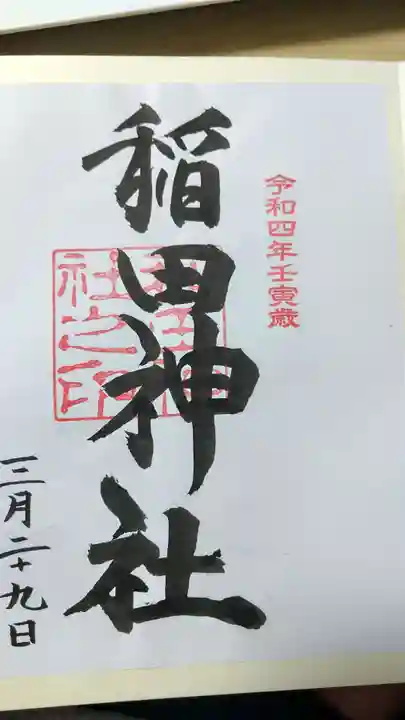 令和四年壬寅歳
稲田神社
社之印
三月二十九日